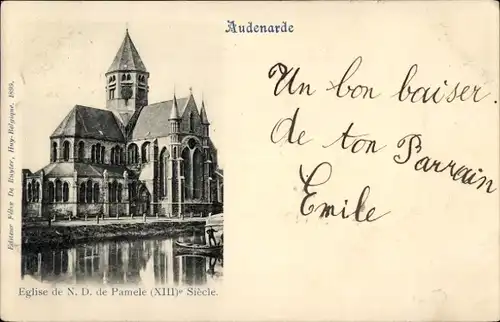 Audenarde
Un bon baiser.
de ton Parrain
Emile
Editeur Félix De Ruyter, Huy-Belgique, 1899.
Eglise de N. D. de Pamele (XIII)e Siècle.